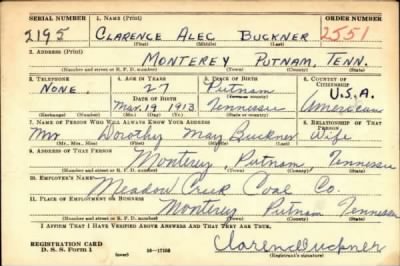 SERIAL NUMBER 1. NAME (Print) ORDER NUMBER
2195 CLARENCE ALEC BUCKNER 2551
(First) (Middle) (Last)
2. ADDRESS (Print)
MONTEREY PUTNAM, TENN.
(Number and street or R. F. D. number) (Town) (County) (State)
3. TELEPHONE 4. AGE IN YEARS 5. PLACE OF BIRTH 6. COUNTRY OF CITIZENSHIP
NONE. 27 Putnam U.S.A.
DATE OF BIRTH (Town or county)
Mar. 19 1913 Tennessee American
(Exchange) (Number) (Mo.) (Day) (Yr.) (State or country)
7. NAME OF PERSON WHO WILL ALWAYS KNOW YOUR ADDRESS 8. RELATIONSHIP OF THAT PERSON
Mrs Dorothy May Buckner Wife
(Mr., Mrs., Miss) (First) (Middle) (Last)
9. ADDRESS OF THAT PERSON
Monterey, Putnam, Tennessee
(Number and street or R. F. D. number) (Town) (County) (State)
10. EMPLOYER'S NAME
Meadow Creek Coal Co.
11. PLACE OF EMPLOYMENT OR BUSINESS
Monterey Putnam Tennessee
(Number and street or R. F. D. number) (Town) (County) (State)
I AFFIRM THAT I HAVE VERIFIED ABOVE ANSWERS AND THAT THEY ARE TRUE.
Clarence Buckner
REGISTRATION CARD
D. S. S. Form 1 (over) (Registrant's signature)